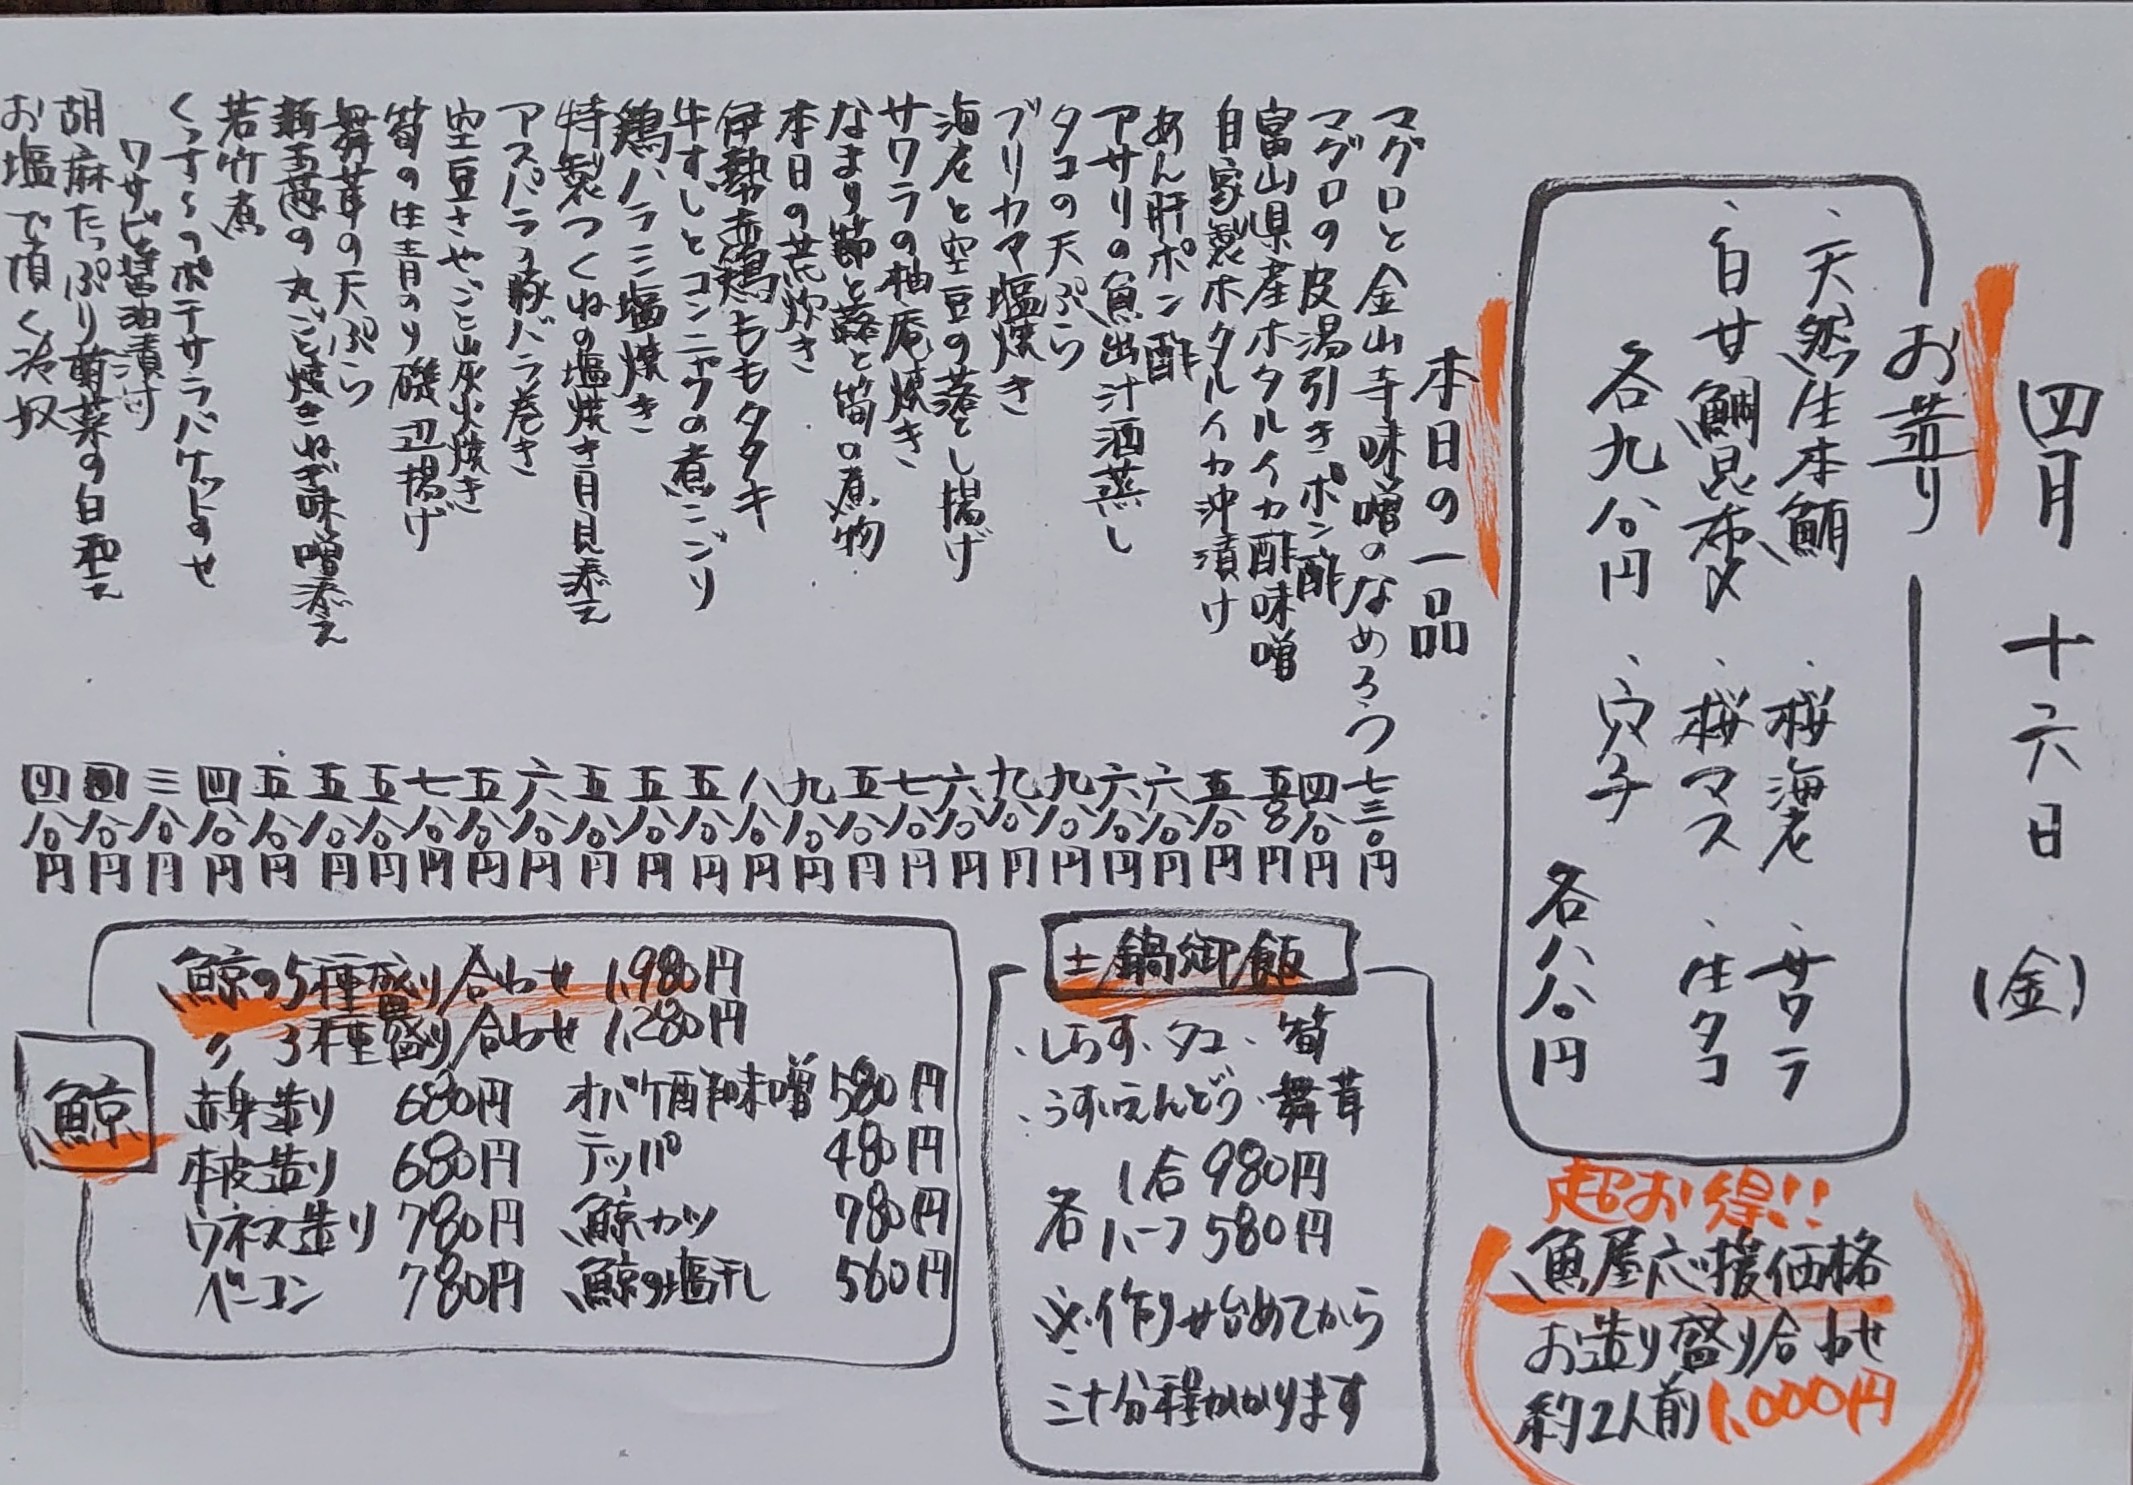 四月十六日(金)
お造り
・天然生本鮪 ・桜海老 ・サワラ
・白甘鯛昆布〆 ・桜マス ・生タコ
各九八〇円 ・穴子
各八八〇円
本日の一品
マグロと金山寺味噌のなめろう 七三〇円
マグロの皮湯引きポン酢 四八〇円
富山県産ホタルイカ酢味噌 五八〇円
自家製ホタルイカ沖漬け 五八〇円
あん肝ポン酢 六八〇円
アサリの魚出汁酒蒸し 六八〇円
タコの天ぷら 九八〇円
ブリカマ塩焼き 九八〇円
海老と空豆の落とし揚げ 六八〇円
サワラの柚庵焼き 七八〇円
なまり節と蕗と筍の煮物 五八〇円
本日の荒炊き 九八〇円
伊勢赤鶏ももタタキ 八八〇円
牛すじとコンニャクの煮こごり 五八〇円
鶏ハラミ塩焼き 五八〇円
特製つくねの塩焼き月見添え 五八〇円
アスパラの豚バラ巻き 六八〇円
空豆さやごと炭火焼き 五八〇円
筍の生青のり磯辺揚げ 七八〇円
舞茸の天ぷら 五八〇円
新玉葱の丸ごと焼きねぎ味噌添え 五八〇円
若竹煮 五八〇円
のポテサラバケットのせ 四八〇円
ワサビ醤油漬け 三八〇円
胡麻たっぷり菊菜の白和え 四八〇円
お塩で頂く冷奴 四八〇円
超お得!!
魚屋応援価格
お造り盛り合わせ
約2人前1,000円
土鍋御飯
・しらす・タコ・筍
・うすいえんどう・舞茸
各 1合 980円
ハーフ 580円
※作り始めてから
三十分程かかります
鯨
鯨の5種盛り合わせ 1,980円
〃 3種盛り合わせ 1,280円
赤身造り 680円 オバケ酢味噌 580円
本皮造り 680円 テッパ 480円
ウネス造り 780円 鯨カツ 780円
ベーコン 780円 鯨の塩干し 560円